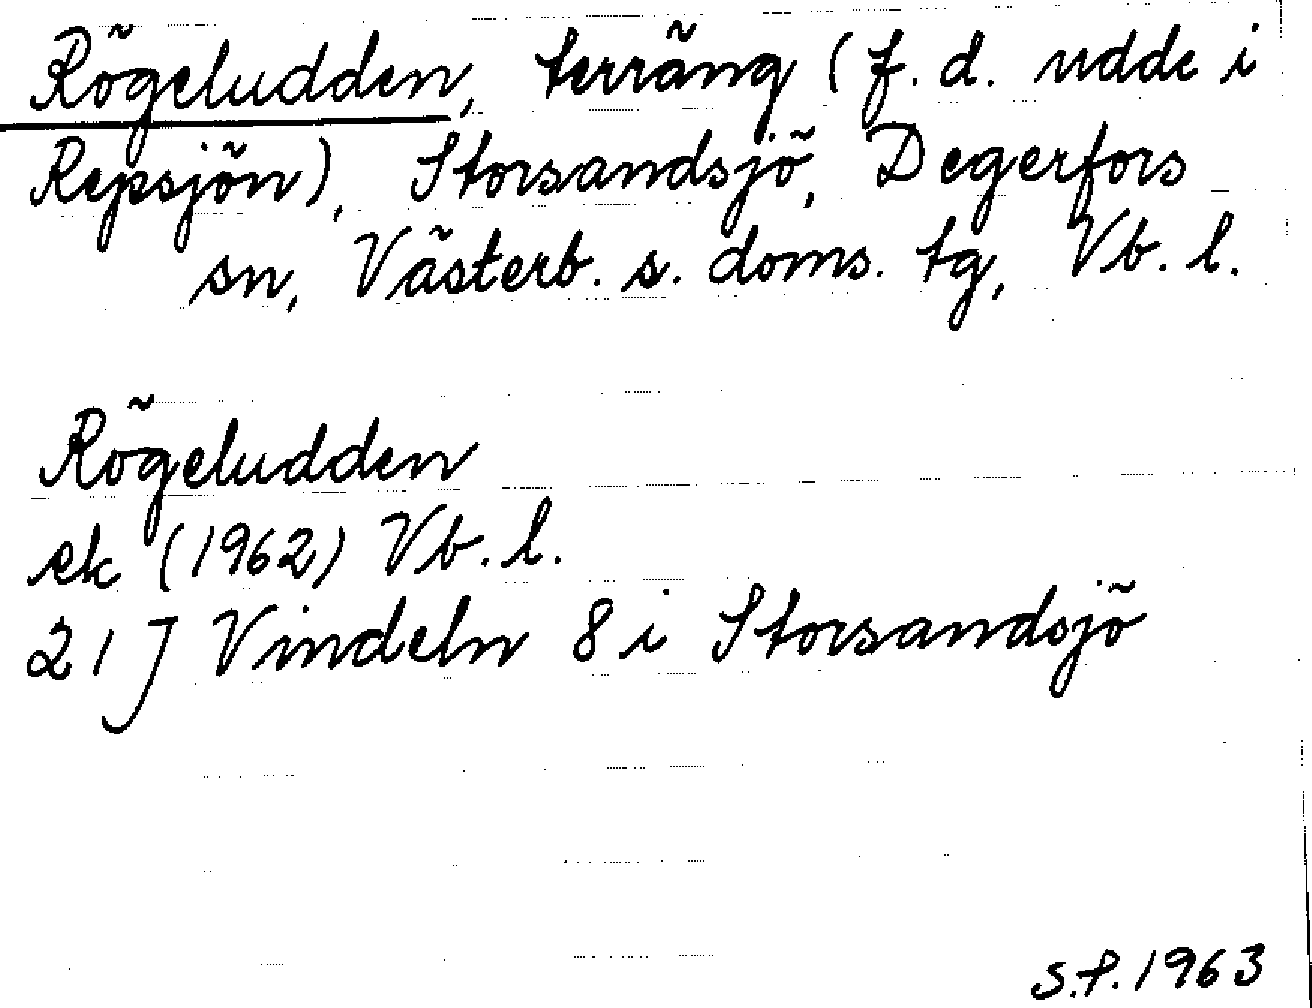 Rögeludden, terräng (f.d. udde i
Repsjön), Storsandsjö, Degerfors
sn, Västerb. s. doms. tg, Vb. l.
Rögeludden
ek (1962) Vb. l.
21 J Vindeln 8 i Storsandsjö
S.P. 1963